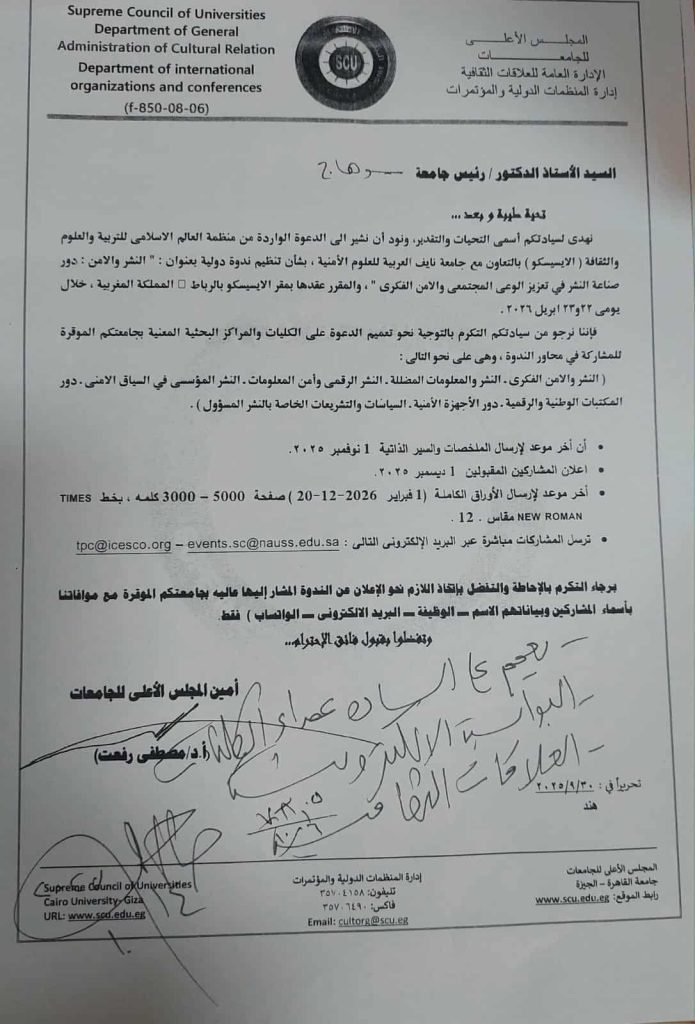 Supreme Council of Universities
Department of General
Administration of Cultural Relation
Department of international
organizations and conferences
(f-850-08-06)
SCU
المجلس الأعلى
للجامعات
الإدارة العامة للعلاقات الثقافية
إدارة المنظمات الدولية والمؤتمرات
السيد الأستاذ الدكتور / رئيس جامعة سوهاج
تحية طيبة و بعد ...
نهدى لسيادتكم أسمى التحيات والتقدير، ونود أن نشير الى الدعوة الواردة من منظمة العالم الاسلامى للتربية والعلوم
والثقافة ( الايسيسكو ) بالتعاون مع جامعة نايف العربية للعلوم الأمنية ، بشأن تنظيم ندوة دولية بعنوان : " النشر والامن : دور
صناعة النشر في تعزيز الوعى المجتمعى والامن الفكرى " ، والمقرر عقدها بمقر الايسيسكو بالرباط □ المملكة المغربية ، خلال
يومى ٢٢و٢٣ ابريل ٢٠٢٦ .
فإننا نرجو من سيادتكم التكرم بالتوجية نحو تعميم الدعوة على الكليات والمراكز البحثية المعنية بجامعتكم الموقرة
للمشاركة في محاور الندوة ، وهى على نحو التالى :
( النشر والامن الفكرى . النشر والمعلومات المضللة . النشر الرقمى وأمن المعلومات . النشر المؤسسى في السياق الامنى . دور
المكتبات الوطنية والرقمية . دور الأجهزة الأمنية . السياسات والتشريعات الخاصة بالنشر المسؤول ) .
• أن أخر موعد لإرسال الملخصات والسير الذاتية 1 نوفمبر ٢٠٢٥ .
• اعلان المشاركين المقبولين 1 ديسمبر ٢٠٢٥ .
• أخر موعد لإرسال الأوراق الكاملة (1 فبراير 2026-12-20 ) صفحة 5000 – 3000 كلمه ، بخط TIMES
NEW ROMAN مقاس . 12 .
• ترسل المشاركات مباشرة عبر البريد الإلكترونى التالى : tpc@icesco.org – events.sc@nauss.edu.sa
برجاء التكرم بالإحاطة والتفضل بإتخاذ اللازم نحو الإعلان عن الندوة المشار إليها عاليه بجامعتكم الموقرة مع موافاتنا
بأسماء المشاركين وبياناتهم الاسم ــ الوظيفة ــ البريد الالكترونى ــ الواتساب ) فقط.
وتفضلوا بقبول فائق الإحترام...
- يعمم على السادة عمداء الكليات
- البوابة الالكترونية
- العلاقات الثقافية
أمين المجلس الأعلى للجامعات
(أ.د/مصطفى رفعت)
تحريراً في : ٢٠٢٥/٩/٣٠
هند
المجلس الأعلى للجامعات
جامعة القاهرة – الجيزة
رابط الموقع: www.scu.edu.eg
إدارة المنظمات الدولية والمؤتمرات
تليفون: ٣٥٧٠٤١٥٨
فاكس: ٣٥٧٠٦٤٩٠
Email: cultorg@scu.eg
Supreme Council of Universities
Cairo University- Giza
URL: www.scu.edu.eg